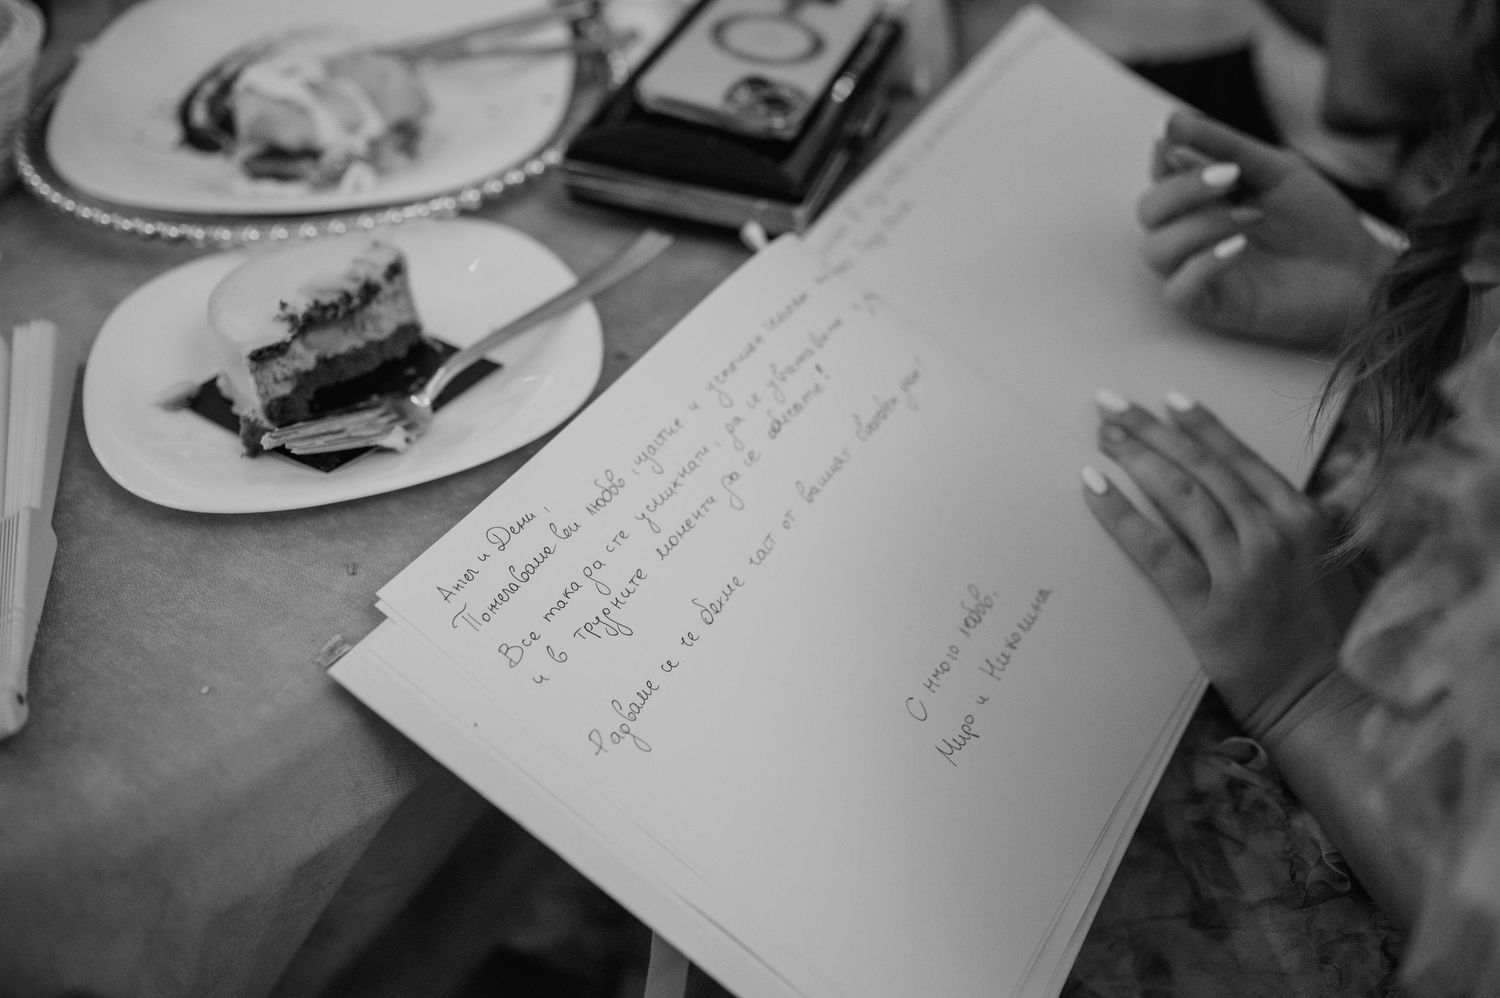 Ангел и Дени,
Пожелаваме ви любов, щастие и успешен семеен
Все така да сте усмихнати, да се уважавате и
и в трудните моменти да се обичате!
Радваме се че бяхме част от вашият сватбен ден
С много любов,
Миро и Николина